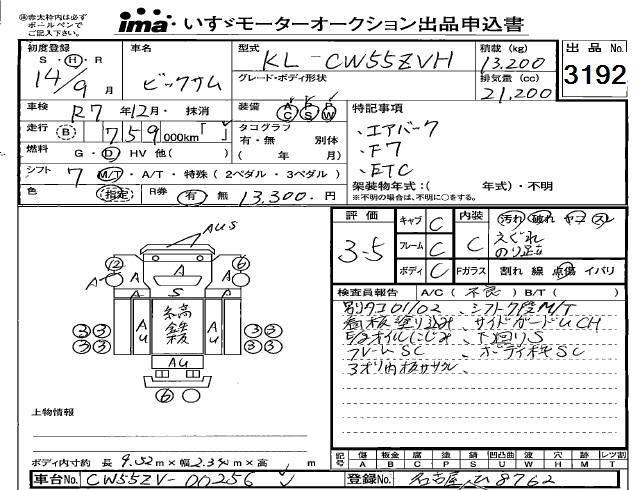 ㊟赤太枠内は必ず
ボールペンで
ご記入下さい。
ima いすゞモーターオークション出品申込書
初度登録 S・H・R 14/9 月
車名 ビックサム
型式 KL-CW55ZVH
グレード・ボディ形状
積載 (kg) 13,200
排気量 (cc) 21,200
出品 No. 3192
車検 R7 年 12月・ 抹消
装備 AC PS PW
特記事項
・エアバーク
・F7
・ETC
走行 B 759,000km「 」
タコグラフ 有・無 別体
( 年 月)
燃料 G・D HV 他( )
シフト 7 M/T・A/T・特殊(2ペダル・3ペダル)
架装物年式:( 年式)・不明
※不明の場合は、不明に○をする。
色 (指定) R券 有 無 13,300.円
評価 3-5
キャブ C
フレーム C
ボディ C
内装 C
汚れ 破れ ヤコ スレ
えぐれ
のり跡
Fガラス 割れ 線 点傷 イバリ
検査員報告 A/C(不良)B/T( )
別タコ01/02、シフト7段M/T
看板塗り込み、サイドガードUCH
オイルにじみ、下廻りS
フレームSC、ボディ枠SC
3オリ内板ササクレ、
AUS
12 6
A A A
A S A
AU 縞鉄板 AU
3 3 3 3
3 3 3 3
AU
6
上物情報
ボディ内寸約 長 9.52m×幅2.34m×高 m
記号 傷 A 板金 B 腐 C 塗 P 錆 S 凹凸曲 U 波 W 穴 H 跡 M レツ割 T
車台No. CW55ZV-00256
登録No. 名古屋 ひ 8762